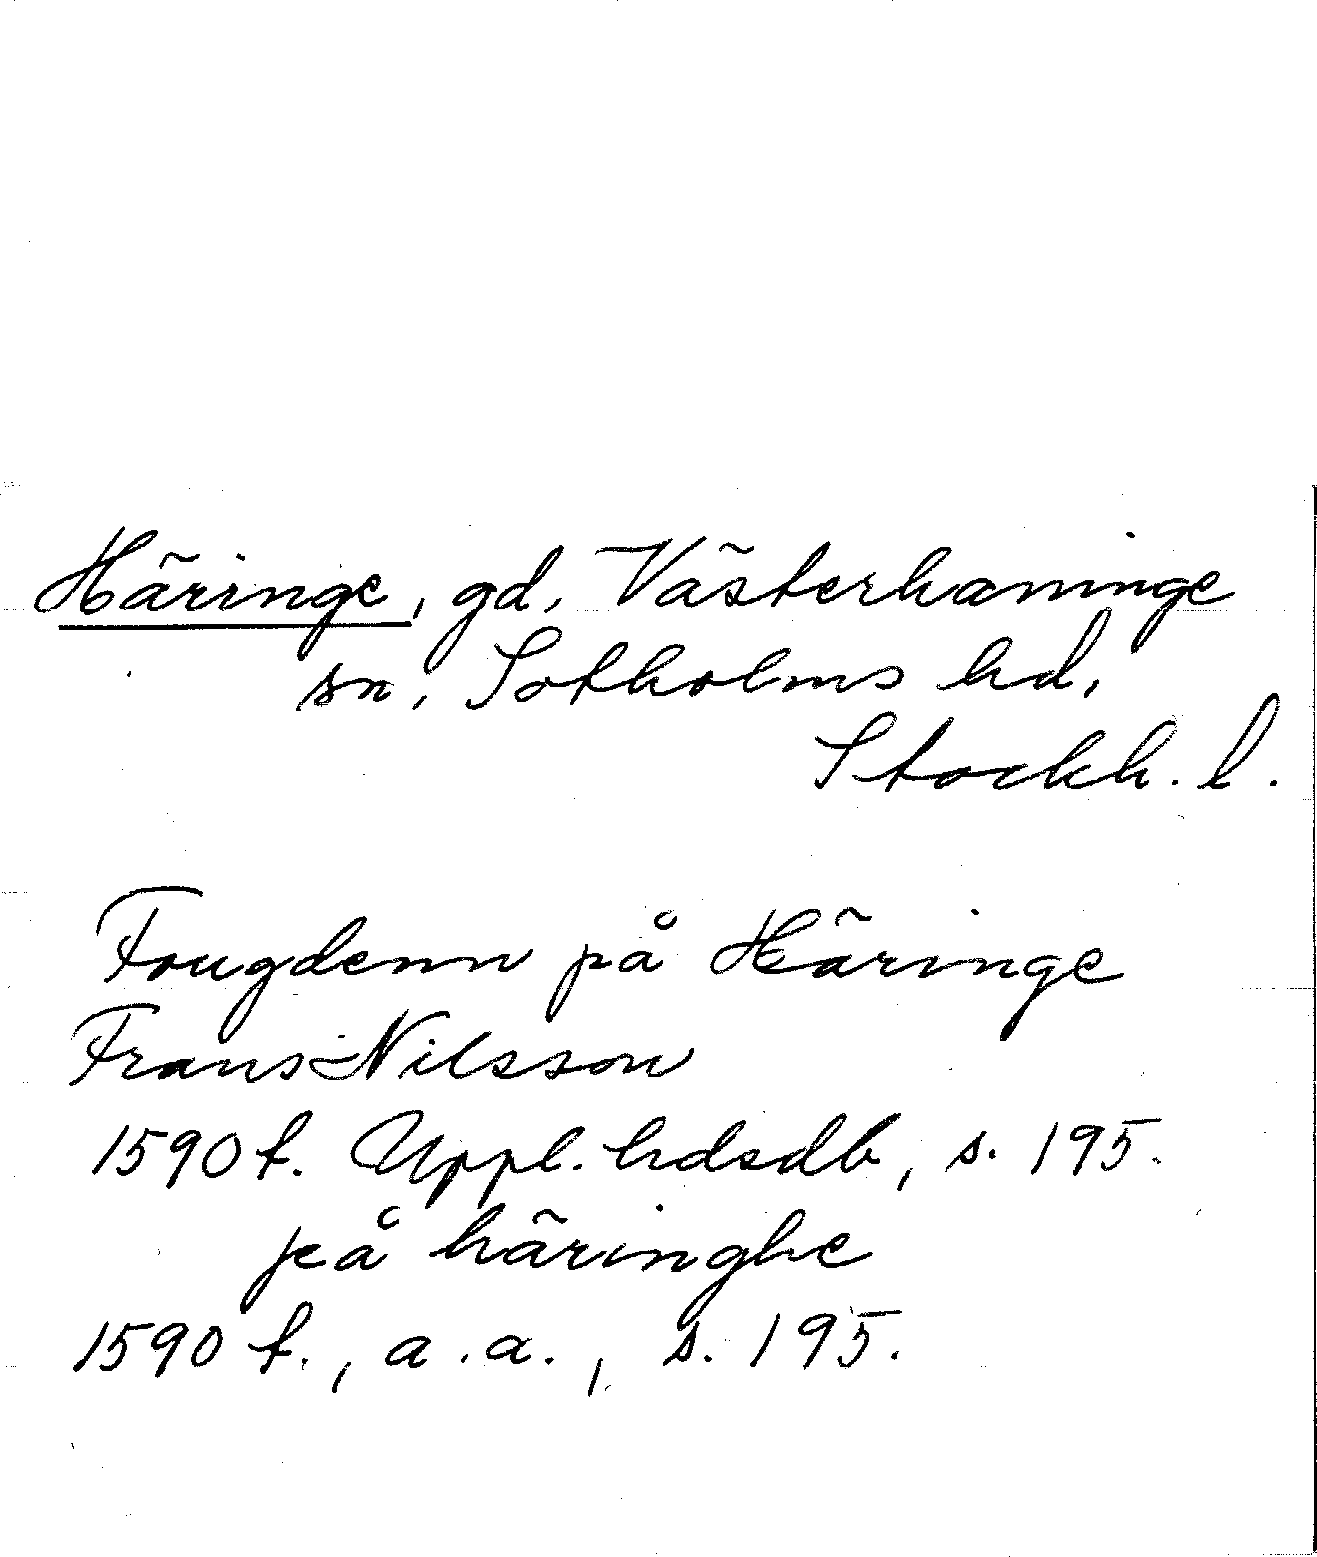 Häringe, gd, Västerhaninge
sn, Sotholms hd,
Stockh. l.
Fougdenn på Häringe
Frans Nilsson
1590 t. Uppl. hdsdb, s. 195.
på häringhe
1590 t., a.a., s. 195.